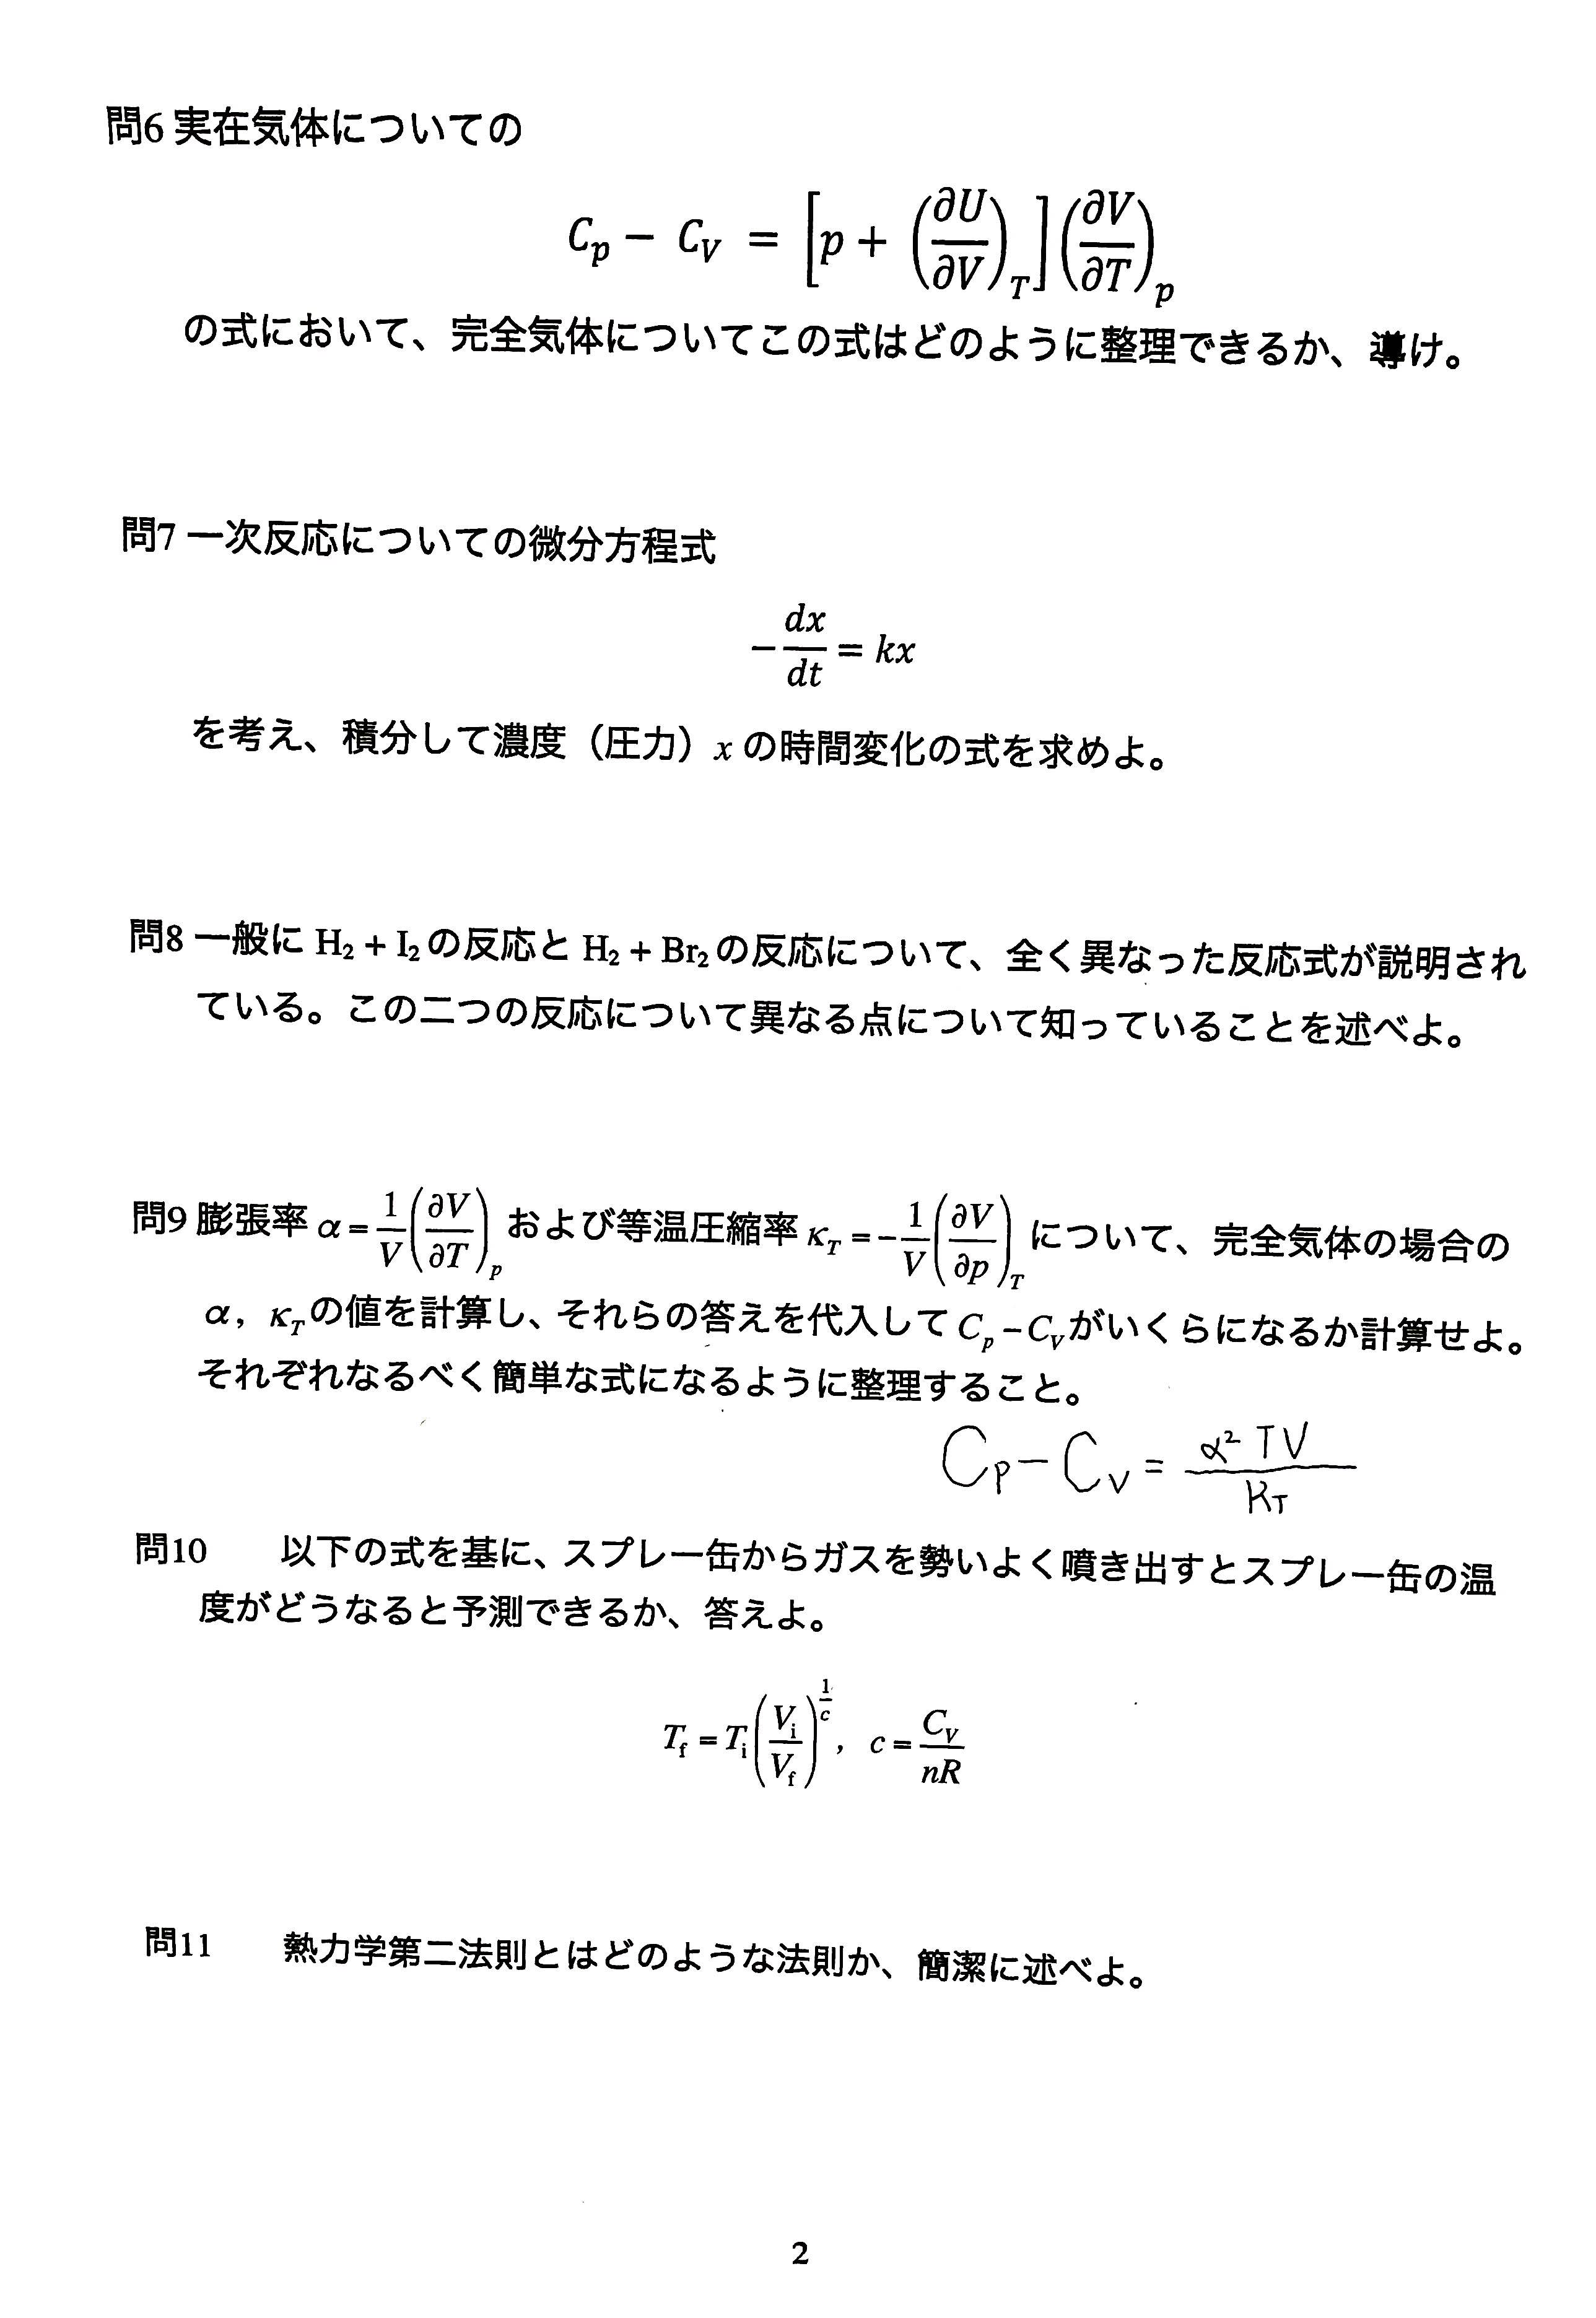 問6 実在気体についての
C_p − C_V = [p + (∂U/∂V)_T](∂V/∂T)_p
の式において、完全気体についてこの式はどのように整理できるか、導け。
問7 一次反応についての微分方程式
−dx/dt = kx
を考え、積分して濃度（圧力）x の時間変化の式を求めよ。
問8 一般に H₂ + I₂ の反応と H₂ + Br₂ の反応について、全く異なった反応式が説明され
ている。この二つの反応について異なる点について知っていることを述べよ。
問9 膨張率 α = 1/V (∂V/∂T)_p および等温圧縮率 κ_T = −1/V (∂V/∂p)_T について、完全気体の場合の
α, κ_T の値を計算し、それらの答えを代入して C_p − C_V がいくらになるか計算せよ。
それぞれなるべく簡単な式になるように整理すること。
C_P − C_V = α² TV / K_T
問10 以下の式を基に、スプレー缶からガスを勢いよく噴き出すとスプレー缶の温
度がどうなると予測できるか、答えよ。
T_f = T_i (V_i/V_f)^(1/c), c = C_V/nR
問11 熱力学第二法則とはどのような法則か、簡潔に述べよ。
2